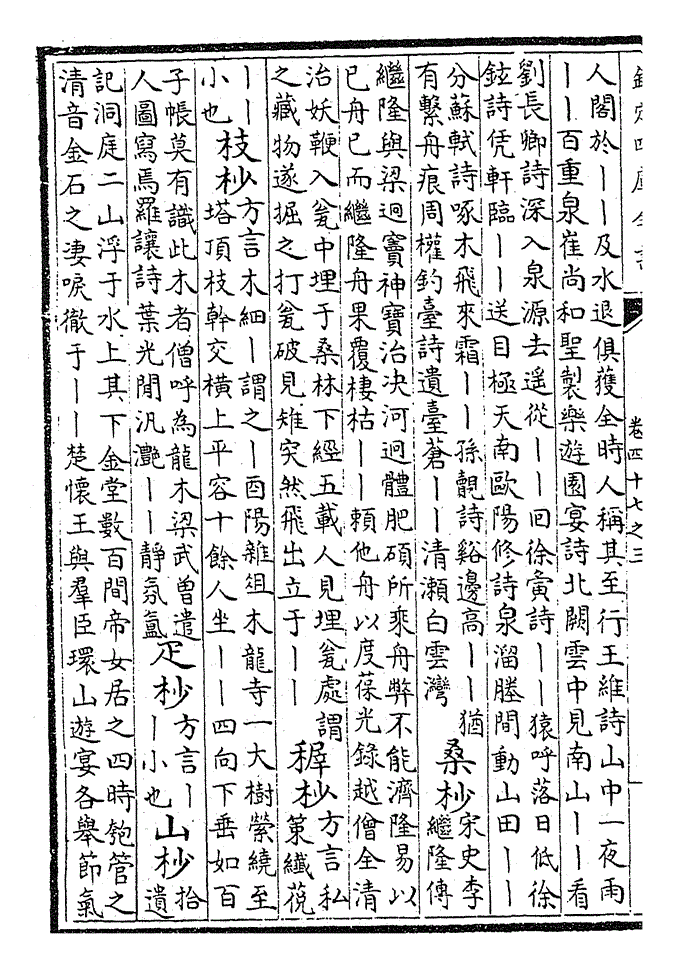 欽定四庫全書 卷四十七之三
人閣於丨丨及水退俱獲全時人稱其至行王維詩山中一夜雨
丨丨百重泉崔尚和聖製樂遊園宴詩北闕雲中見南山丨丨看
劉長卿詩深入泉源去遥從丨丨回徐夤詩丨丨猿呼落日低徐
鉉詩凭軒臨丨丨送目極天南歐陽修詩泉溜塍間動山田丨丨
分蘇軾詩啄木飛來霜丨丨孫覿詩谿邊高丨丨猶
有繫舟痕周權釣臺詩遺臺蒼丨丨清瀬白雲灣
桑杪
宋史李
繼隆傳
繼隆與梁迥竇神寶治決河迥體肥碩所乘舟弊不能濟隆易以
已舟已而繼隆舟果覆棲枯丨丨頼他舟以度葆光錄越僧全清
治妖鞭入瓮中埋于桑林下經五載人見埋瓮處謂
之藏物遂掘之打瓮破見雉突然飛出立于丨丨
稺杪
方言私
策纖莌
丨丨
小也
枝杪
方言木細丨謂之丨酉陽雜俎木龍寺一大樹縈繞至
塔頂枝幹交橫上平容十餘人坐丨丨四向下垂如百
子帳莫有識此木者僧呼為龍木梁武曾遣
人圖寫焉羅讓詩葉光閒汎灧丨丨靜氛氳
疋杪
方言丨
丨小也
山杪
拾
遺
記洞庭二山浮于水上其下金堂數百間帝女居之四時匏管之
清音金石之凄唳徹于丨丨楚懷王與羣臣環山遊宴各舉節氣